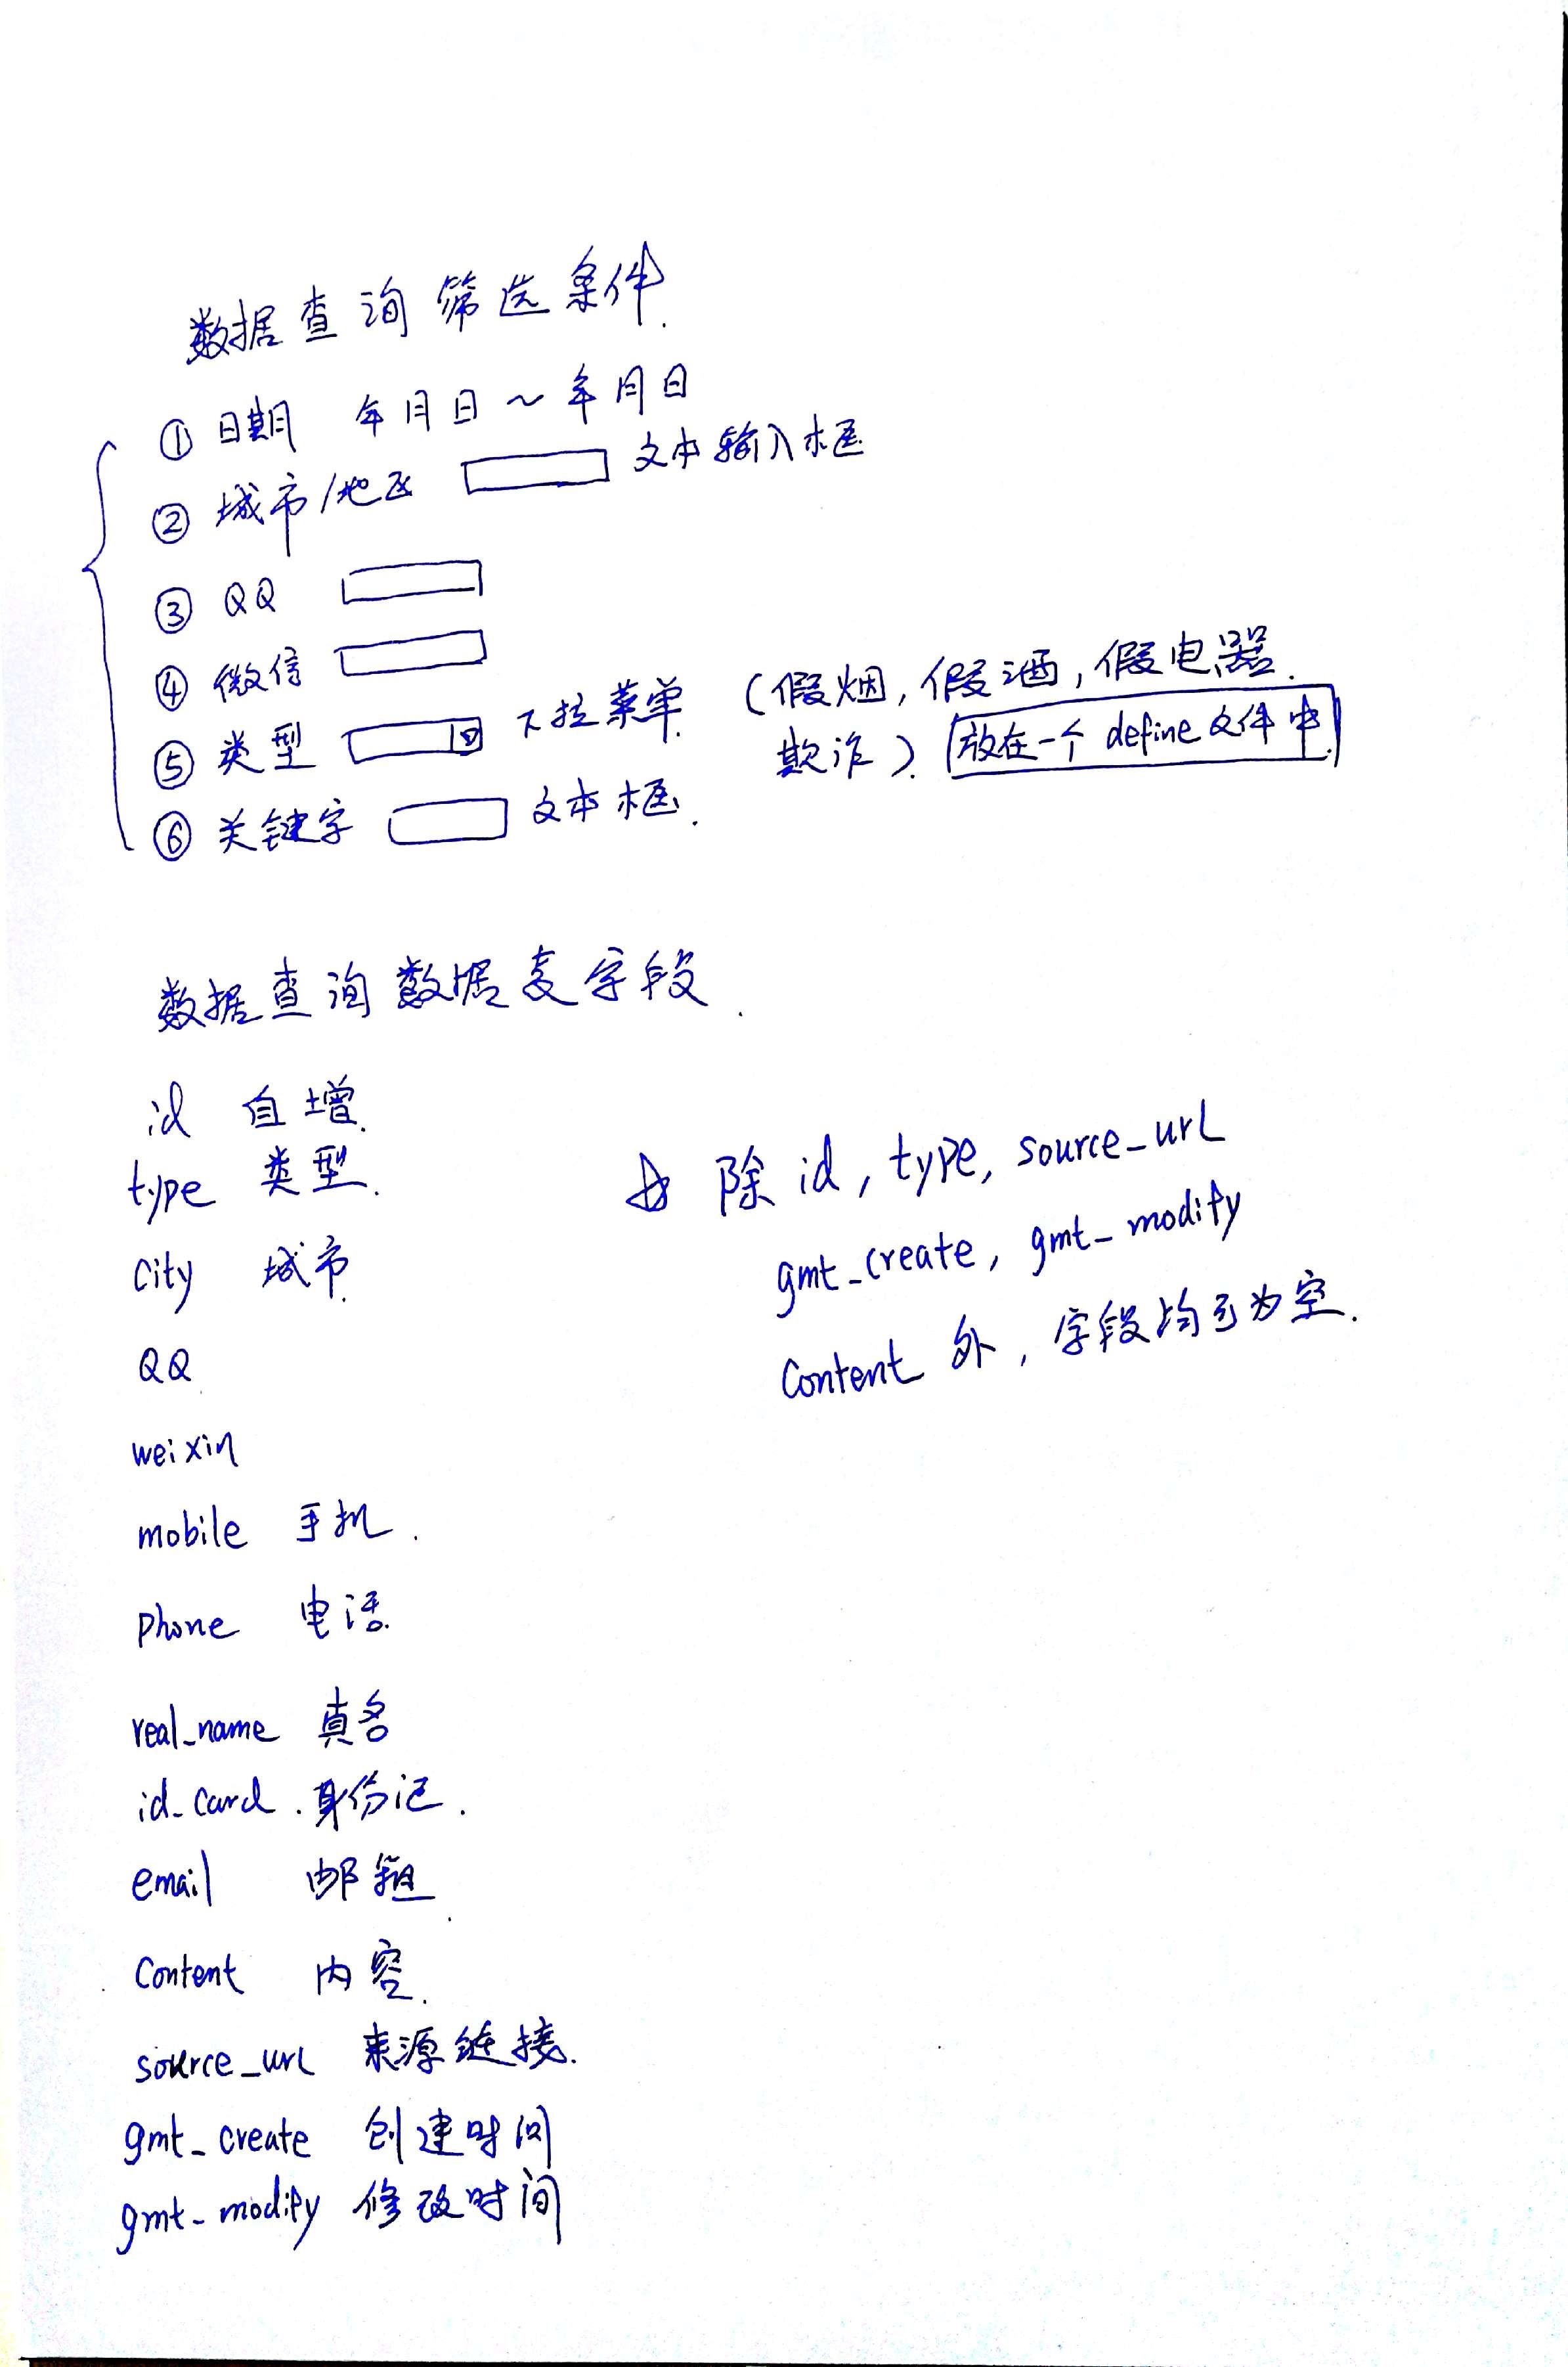 数据查询筛选条件.
① 日期 年月日～年月日
② 城市/地区 文本输入框
③ QQ
④ 微信
⑤ 类型 下拉菜单. (假烟,假酒,假电器.
欺诈). 放在一个 define 文件中.
⑥ 关键字 文本框.
数据查询数据表字段.
id 自增.
type 类型.
city 城市.
QQ
weixin
mobile 手机.
phone 电话.
real_name 真名
id_card. 身份证.
email 邮箱.
content 内容.
source_url 来源链接.
gmt_create 创建时间
gmt_modify 修改时间
除 id, type, source_url
gmt_create, gmt_modify
content 外, 字段均可为空.